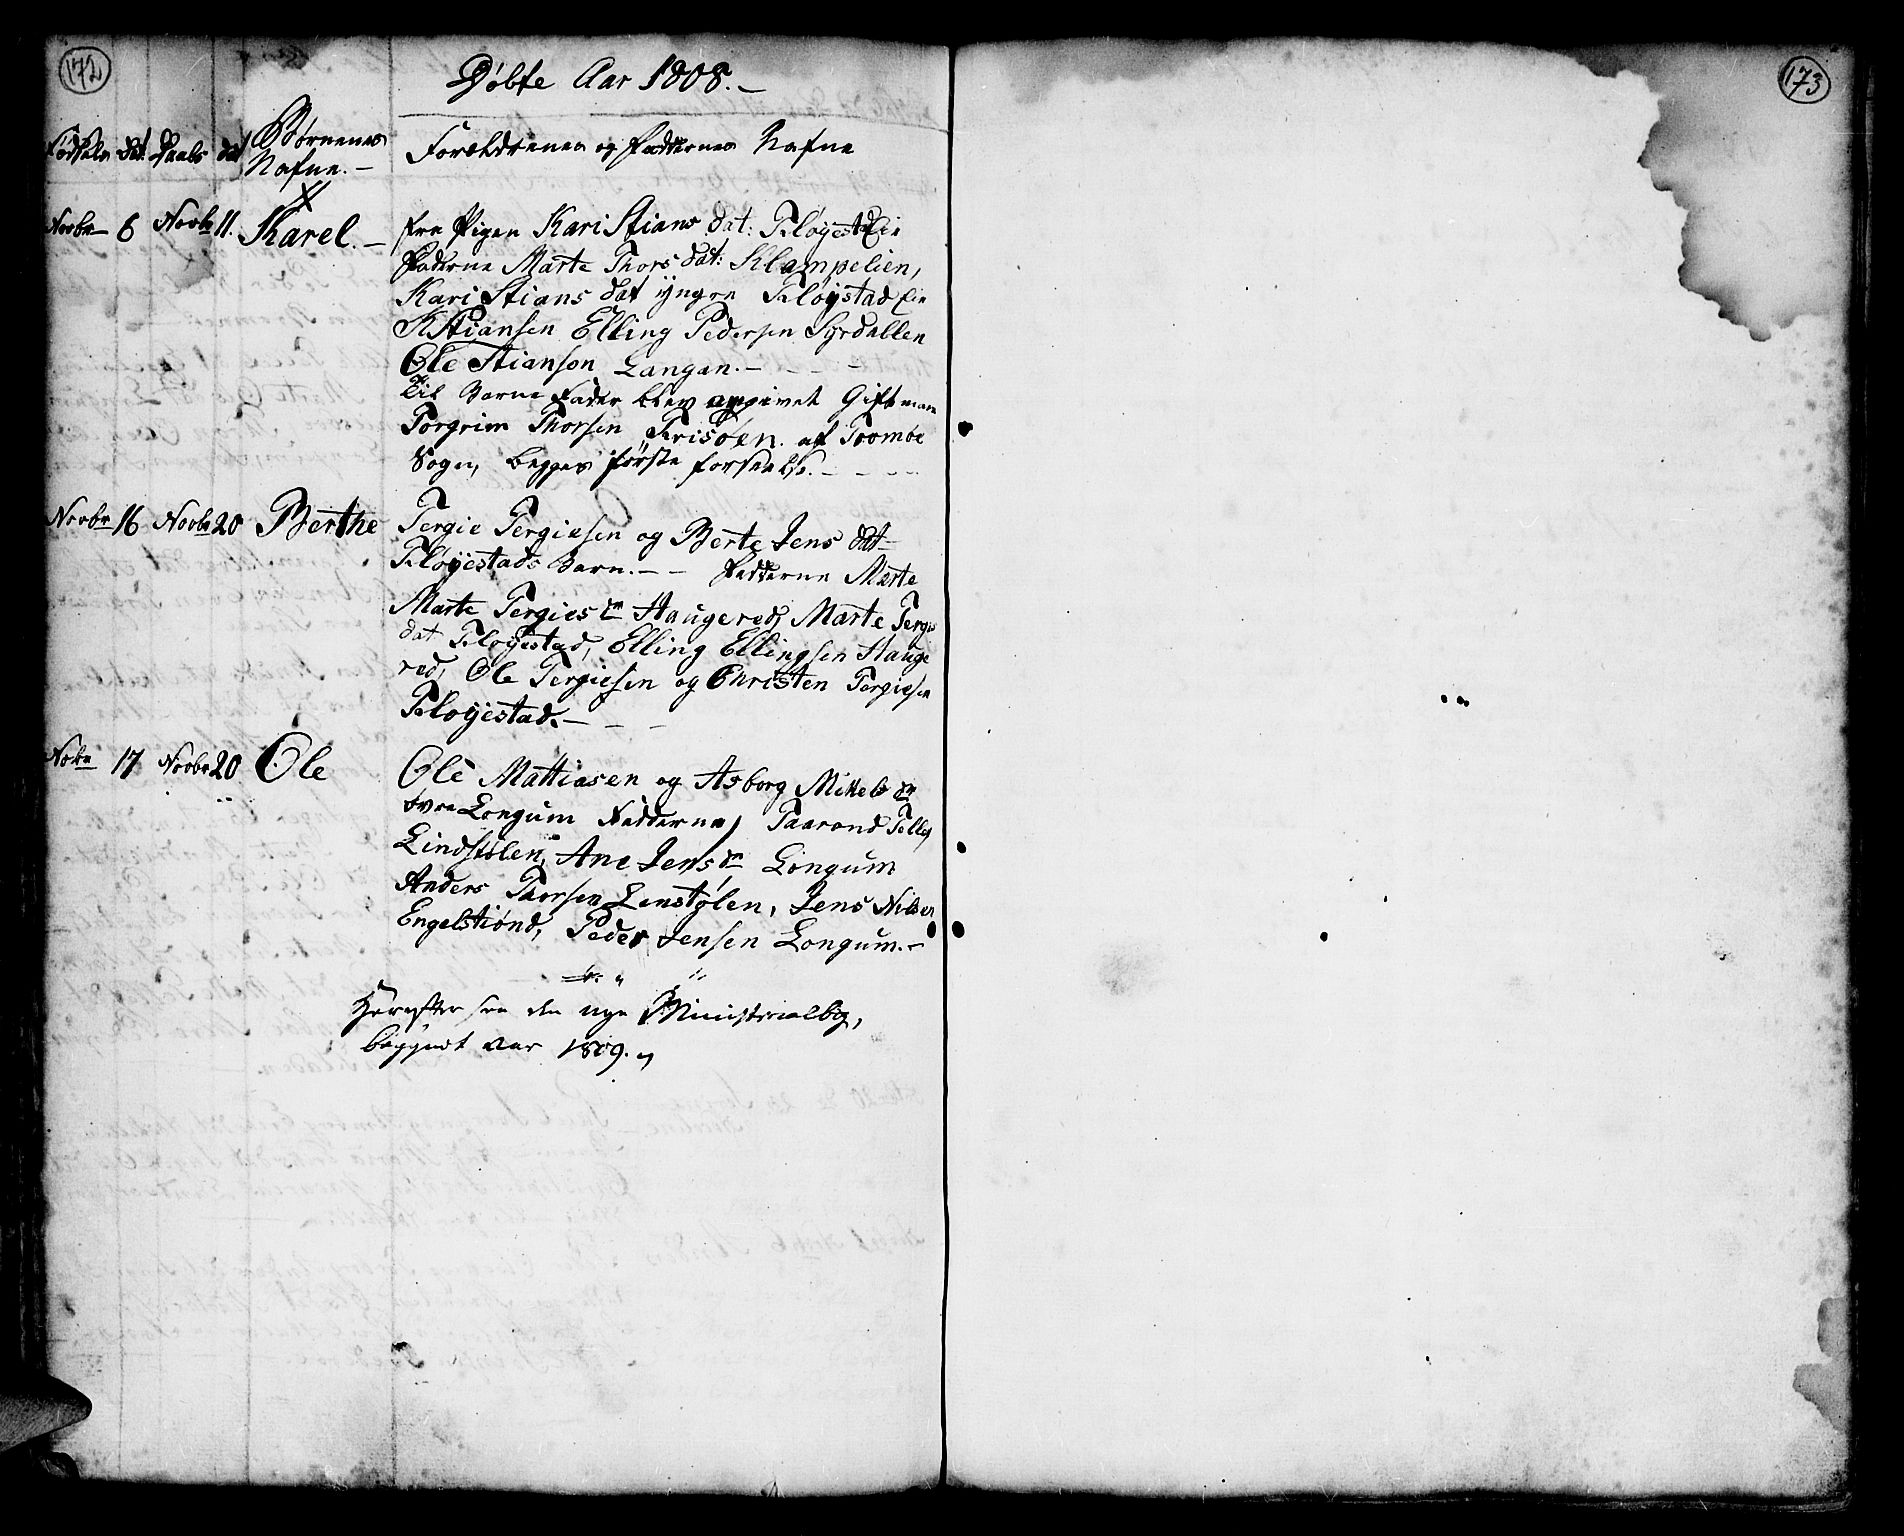 172
173
Døbte Aar 1808.-
Fødsels dat Daabs dat Børnenes
Nafne.-
Forældrenes og Faddernes Nafne
Novbr 6 Novbr 11. Karel.-
Pigen Kari Stians dat: Fløyestad Eie
Fadderne Marte Thors dat: Klampelien,
Kari Stians dat yngre Fløystad Eie
Stiansen Elling Pedersen Syrdallen
Ole Stianson Langan.-
Til Barne Fader blev angivet Giftmann
Torgrim Thorsen Frisøen. af Tromøe
Sogn, begges første forseelse.-
Novbr 16 Novbr 20 Berthe
Tergie Tergiesen og Berte Jens dat
Fløyestads Barn.- - Fadderne Marte
Marte Tergies dr Haugered, Marte Tergies
dat Fløyestad, Elling Ellingsen Hauge
red, Ole Tergiesen og Christen Tergiesen
Fløyestad.-
Nobr 17 Novbr 20 Ole
Ole Mattiasen og Asborg Mikels dr
øvre Longum Fadderne, Taarand
Lindstølen, Ane Jens dr Longum
Anders Thorsen Lenstølen, Jens Nilsen
Engelstiønd, Peder Jensen Longum.-
Herefter see den nye Ministrialbog,
begyndt aar 1809.